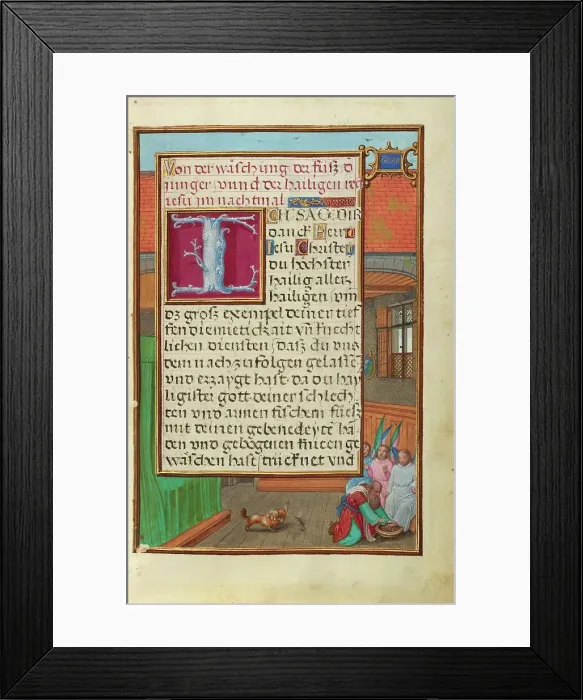 Von der wäschung der füsz d
iunger vnnd der hailigen red
iesu jm nachtmal
ICH SAG DIR
danck Herr
Jesu Christe
du höchster
hailig aller
hailigen vm
dz grosz exempel deiner tief
fen diemietickait vn̄ knecht
lichen diensten, dasz du vns
dem nach zu folgen gelasse
vnd erzaygt hast da du hay
ligister gott deiner schlech
ten vnd armen fischern füesz
mit deinen gebenedeyte hä
den vnd gebögenen knieen ge
wäschen hast, trücknet vnd